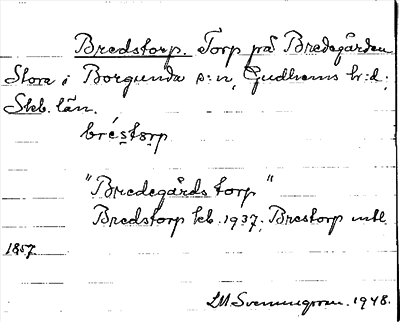 Bredstorp. Torp på Bredegården
Stora i Borgunda s:n, Gudhems hd:,
Skb. län.
bréstorp
"Bredegårds torp"
Bredstorp kb. 1937; Brestorp mtl
1857.
LM Svenungsson. 1948.